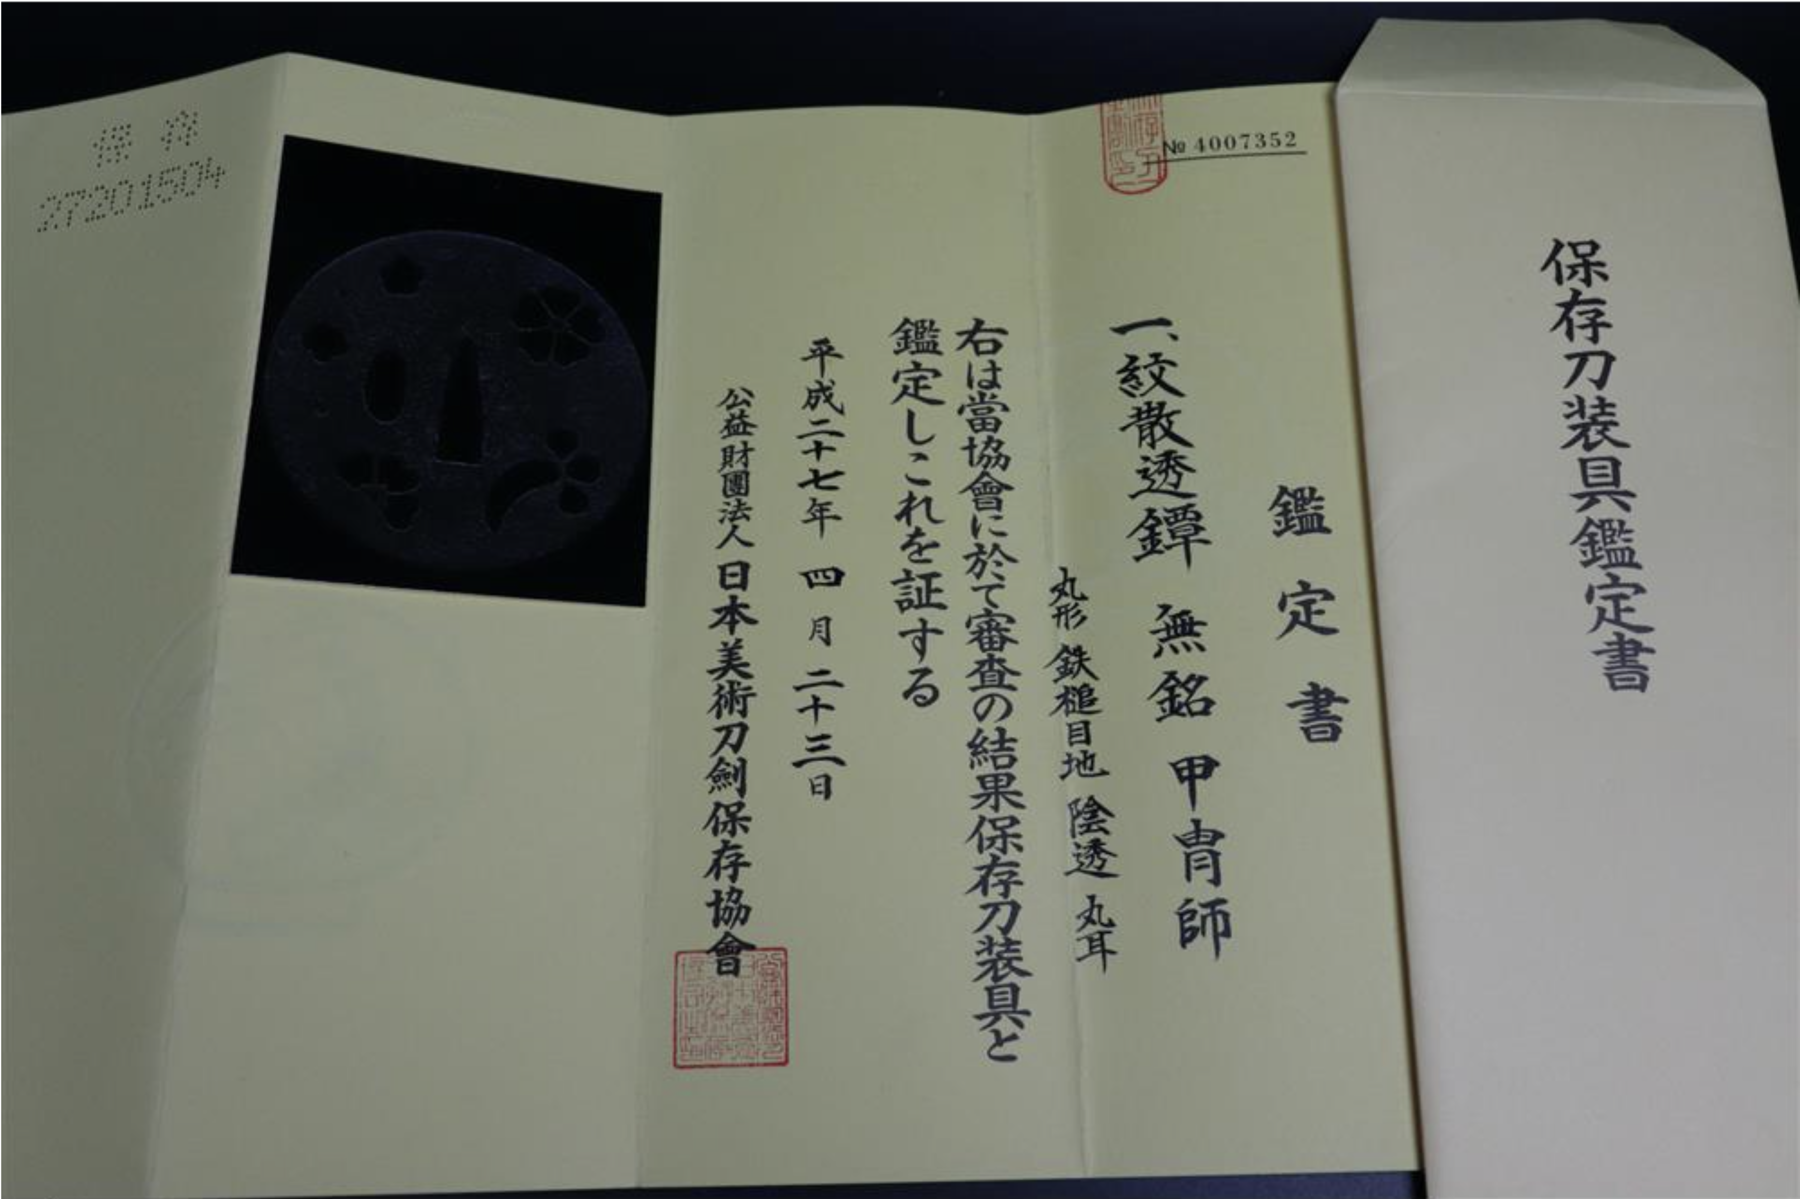 保存刀装具鑑定書
№ 4007352
鑑定書
一、紋散透鐔 無銘 甲冑師
丸形 鉄槌目地 陰透 丸耳
右は當協會に於て審査の結果保存刀装具と
鑑定しこれを証する
平成二十七年 四月 二十三日
公益財團法人 日本美術刀劍保存協會
27201504